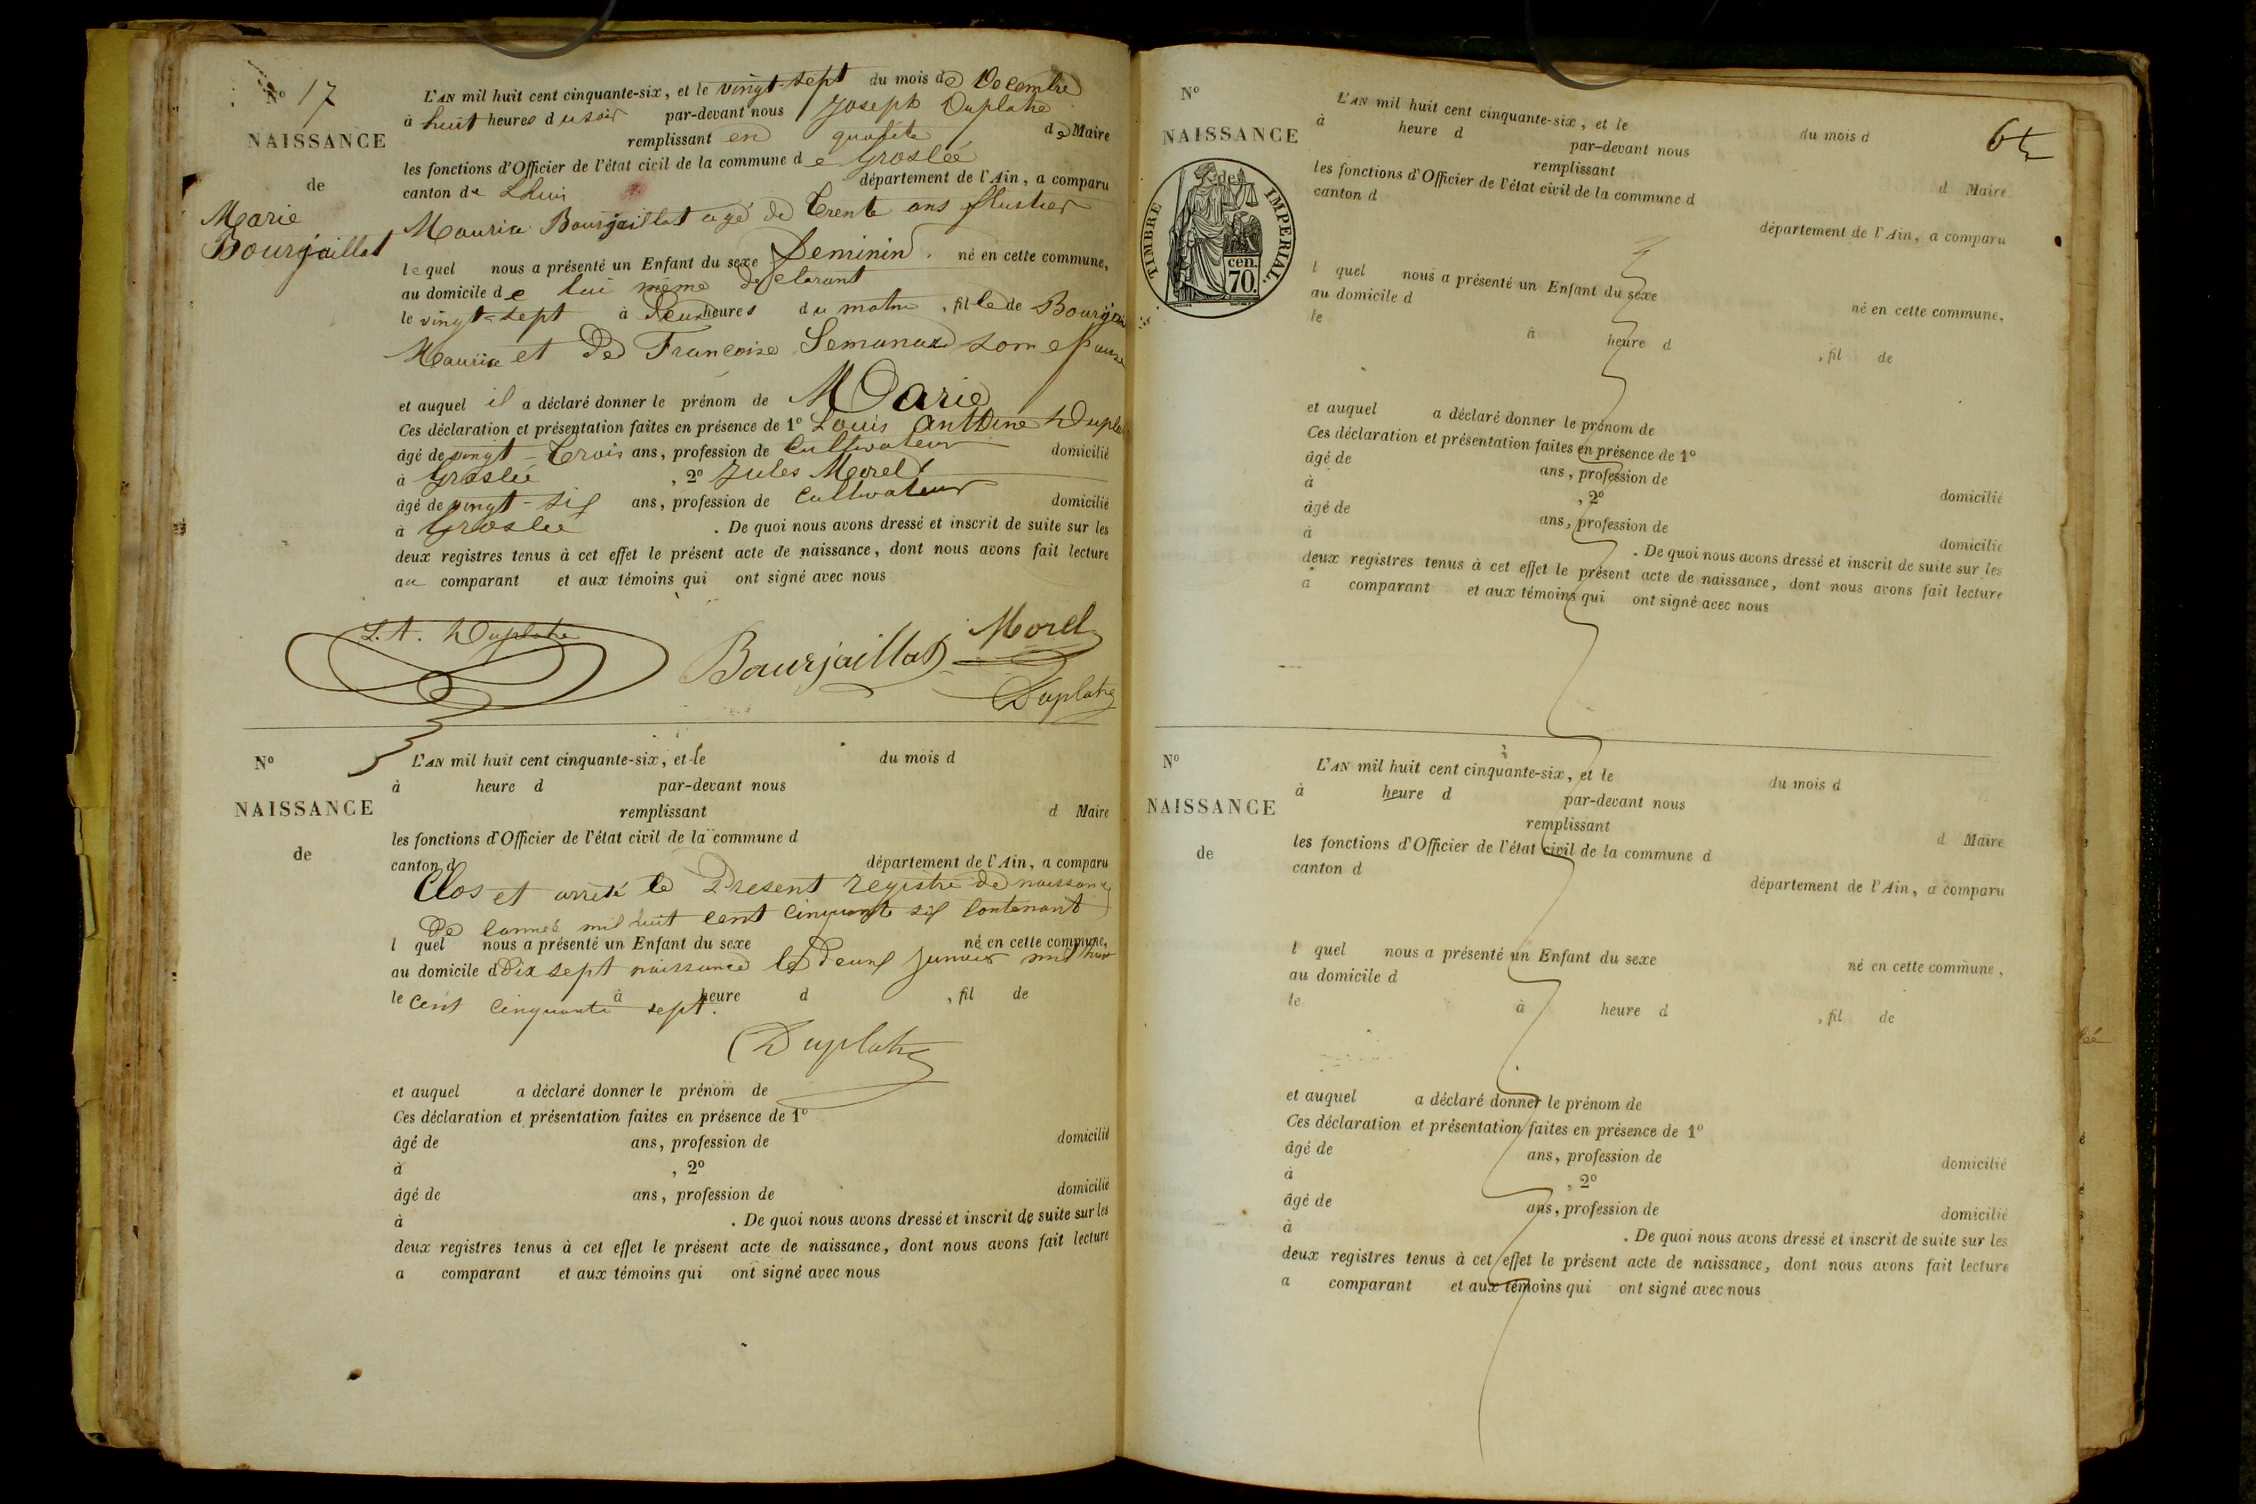 Nº 17
NAISSANCE
de
Marie
Bourjaillat
L'AN mil huit cent cinquante-six, et le vingt-sept du mois de Decembre
à huit heures du soir par-devant nous Joseph Duplatre
remplissant en qualité de Maire
les fonctions d'Officier de l'état civil de la commune de Groslée
canton de Lhuis département de l'Ain, a comparu
Mauria Bourjaillat agé de Trente ans
lequel nous a présenté un Enfant du sexe feminin. né en cette commune,
au domicile de lui même déclarant
le vingt-sept à Deux heures du matin, fille de Bourjai
Mauria et De Francoise Semanaz son epouse
et auquel il a déclaré donner le prénom de Marie
Ces déclaration et présentation faites en présence de 1º Louis Anthoine Dupla
âgé de vingt-Trois ans, profession de Cultivateur domicilié
à Groslée, 2º Jules Morel
âgé de vingt-six ans, profession de Cultivateur domicilié
à Groslée. De quoi nous avons dressé et inscrit de suite sur les
deux registres tenus à cet effet le présent acte de naissance, dont nous avons fait lecture
au comparant et aux témoins qui ont signé avec nous
L. A. Duplatre
Bourjaillat
Morel
Duplatre
Nº
NAISSANCE
de
L'AN mil huit cent cinquante-six, et le du mois d
à heure d par-devant nous
remplissant d Maire
les fonctions d'Officier de l'état civil de la commune d
canton d département de l'Ain, a comparu
Clos et arrêté le Present registre de naissance
De l'année mil huit cent cinquante six contenant
l quel nous a présenté un Enfant du sexe né en cette commune,
au domicile d
dix sept naissance le Deux Janvier mil huit
le à heure d, fil de
cent cinquante sept.
Duplatre
et auquel a déclaré donner le prénom de
Ces déclaration et présentation faites en présence de 1º
âgé de ans, profession de domicilié
à, 2º
âgé de ans, profession de domicilié
à. De quoi nous avons dressé et inscrit de suite sur les
deux registres tenus à cet effet le présent acte de naissance, dont nous avons fait lecture
a comparant et aux témoins qui ont signé avec nous
Nº
NAISSANCE
de
TIMBRE IMPERIAL.
cen.
70.
L'AN mil huit cent cinquante-six, et le du mois d
à heure d par-devant nous
remplissant d Maire
les fonctions d'Officier de l'état civil de la commune d
canton d département de l'Ain, a comparu
l quel nous a présenté un Enfant du sexe né en cette commune,
au domicile d
le à heure d, fil de
et auquel a déclaré donner le prénom de
Ces déclaration et présentation faites en présence de 1º
âgé de ans, profession de domicilié
à, 2º
âgé de ans, profession de domicilié
à. De quoi nous avons dressé et inscrit de suite sur les
deux registres tenus à cet effet le présent acte de naissance, dont nous avons fait lecture
a comparant et aux témoins qui ont signé avec nous
Nº
NAISSANCE
de
L'AN mil huit cent cinquante-six, et le du mois d
à heure d par-devant nous
remplissant d Maire
les fonctions d'Officier de l'état civil de la commune d
canton d département de l'Ain, a comparu
l quel nous a présenté un Enfant du sexe né en cette commune,
au domicile d
le à heure d, fil de
et auquel a déclaré donner le prénom de
Ces déclaration et présentation faites en présence de 1º
âgé de ans, profession de domicilié
à, 2º
âgé de ans, profession de domicilié
à. De quoi nous avons dressé et inscrit de suite sur les
deux registres tenus à cet effet le présent acte de naissance, dont nous avons fait lecture
a comparant et aux témoins qui ont signé avec nous